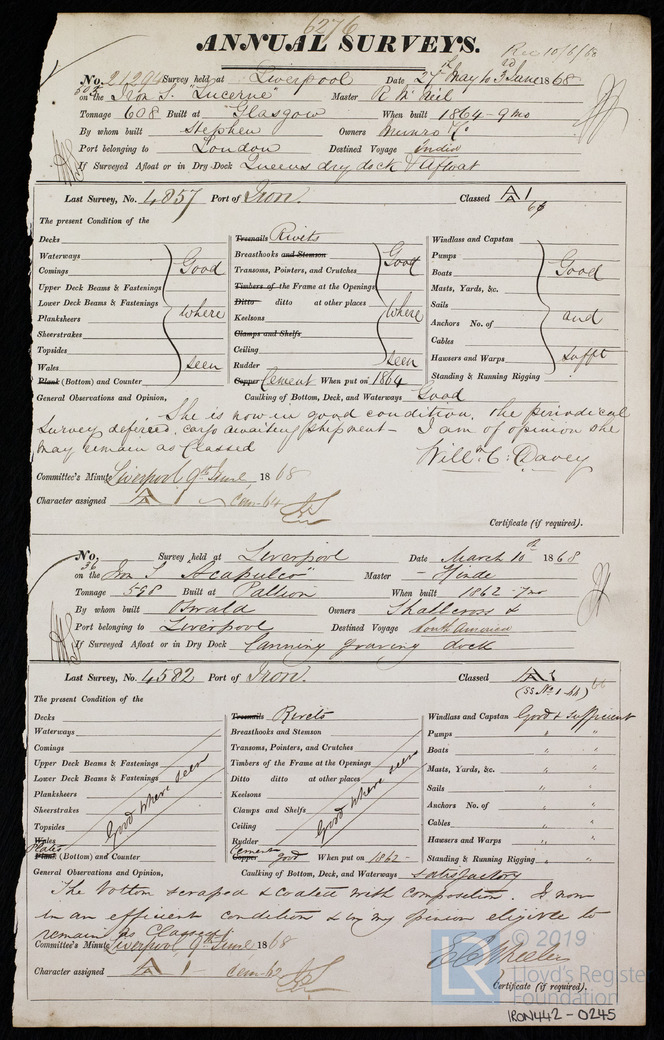 6276
ANNUAL SURVEYS.
Rec 10/6/68
No. 21294 Survey held at Liverpool Date 27th May to 3rd June 1868
on the Iron S. "Lucerne" Master R McNeil
Tonnage 608 Built at Glasgow When built 1864 - 9 mo
By whom built Stephen Owners Munro &c
Port belonging to London Destined Voyage India
If Surveyed Afloat or in Dry Dock Queens dry dock & Afloat
Last Survey, No. 4857 Port of Iron. Classed A A 1
The present Condition of the
Decks Treenails Rivets Windlass and Capstan
Waterways Breasthooks and Stemson Pumps
Comings Good Transoms, Pointers, and Crutches Good Boats Good
Upper Deck Beams & Fastenings Timbers of the Frame at the Openings Masts, Yards, &c.
Lower Deck Beams & Fastenings Ditto ditto at other places Sails
Planksheers where Keelsons where Anchors No. of and
Sheerstrakes Clamps and Shelfs Cables
Topsides Ceiling Hawsers and Warps sufft
Wales seen Rudder seen Standing & Running Rigging
Plank (Bottom) and Counter Copper Cement When put on 1864
General Observations and Opinion, Caulking of Bottom, Deck, and Waterways Good
She is now in good condition, the periodical
Survey defered, cargo awaiting shipment - I am of opinion she
may remain as Classed
Willm C: Davey
Committee's Minute Liverpool 9th June, 1868
Character assigned A 1 Cem-64
Certificate (if required).
No. Survey held at Liverpool Date March 10th 1868
on the Iron S "Acapulco" Master - Hinde
Tonnage 558 Built at Pallion When built 1862 - 7 mo
By whom built Oswald Owners Shallcross &
Port belonging to Liverpool Destined Voyage South America
If Surveyed Afloat or in Dry Dock Canning graving dock
Last Survey, No. 4582 Port of Iron. Classed A 1
(SS No 1-66) 66
The present Condition of the
Decks Treenails Rivets Windlass and Capstan Good & sufficient
Waterways Breasthooks and Stemson Pumps " "
Comings Transoms, Pointers, and Crutches Boats " "
Upper Deck Beams & Fastenings Timbers of the Frame at the Openings Masts, Yards, &c. " "
Lower Deck Beams & Fastenings Good where seen Ditto ditto at other places Good where seen Sails " "
Planksheers Keelsons Anchors No. of " "
Sheerstrakes Clamps and Shelfs Cables " "
Topsides Ceiling Hawsers and Warps " "
Wales Rudder Standing & Running Rigging " "
Plates Plank (Bottom) and Counter Cement Copper good When put on 1862 -
General Observations and Opinion, Caulking of Bottom, Deck, and Waterways satisfactory
The bottom scraped & coated with composition. Is now
in an efficient condition & in my opinion eligible to
remain as Classed
Committee's Minute Liverpool 9th June 1868
E C Wheeler
Character assigned A 1 - cem-62
Certificate (if required).
LR
© 2019
Lloyd's Register
Foundation
IRON442-0245